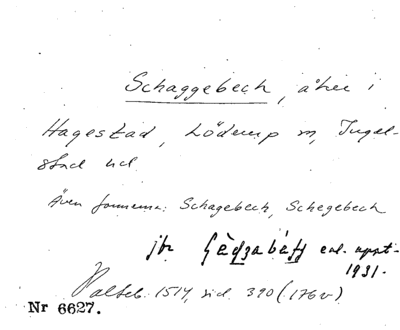 Schaggebech, åker i
Hagestad, Löderup sn, Ingel-
stad hd
Även formerna: Schagebech, Schegebech
jfr enl. uppt.
1931.
Palteb. 1514, sid. 390 (176v)
Nr 6627.